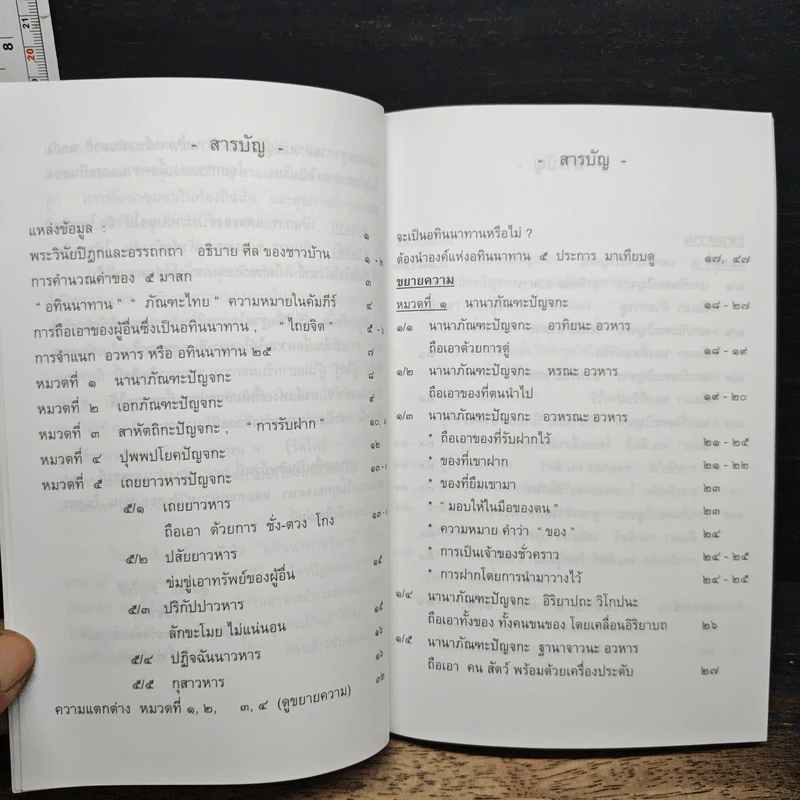 - สารบัญ -
แหล่งข้อมูล :
พระวินัยปิฎกและอรรถกถา อธิบาย ศีล ของชาวบ้าน ๑
การคำนวณค่าของ ๕ มาสก ๑ - ๒
“ อทินนาทาน ” “ ภัณฑะไทย ” ความหมายในคัมภีร์ ๓
การถือเอาของผู้อื่นซึ่งเป็นอทินนาทาน , “ ไถยจิต ” ๔
การจำแนก อวหาร หรือ อทินนาทาน ๒๕ ๕ -
หมวดที่ ๑ นานาภัณฑะปัญจกะ ๗
หมวดที่ ๒ เอกภัณฑะปัญจกะ ๘
หมวดที่ ๓ สาหัตถิกะปัญจกะ , “ การรับฝาก ” ๙
หมวดที่ ๔ ปุพพปโยคปัญจกะ ๑๐,
หมวดที่ ๕ เถยยาวหารปัญจกะ ๑๒
๕/๑ เถยยาวหาร ๑๓ -
ถือเอา ด้วยการ ชั่ง-ตวง โกง ๑๓ -
๕/๒ ปสัยยาวหาร
ข่มขู่เอาทรัพย์ของผู้อื่น ๑๕
๕/๓ ปริกัปปาวหาร
ลักขะโมย ไม่แน่นอน ๑๕
๕/๔ ปฏิจฉันนาวหาร ๑๖
๕/๕ กุสาวหาร ๑๖
ความแตกต่าง หมวดที่ ๑, ๒, ๓, ๔ (ดูขยายความ) ๓๒
- สารบัญ -
จะเป็นอทินนาทานหรือไม่ ?
ต้องนำองค์แห่งอทินนาทาน ๕ ประการ มาเทียบดู ๑๗, ๔๗
ขยายความ
หมวดที่ ๑ นานาภัณฑะปัญจกะ ๑๘ - ๒๗
๑/๑ นานาภัณฑะปัญจกะ อาทิยนะ อวหาร
ถือเอาด้วยการตู่ ๑๘ - ๑๙
๑/๒ นานาภัณฑะปัญจกะ หรณะ อวหาร
ถือเอาของที่ตนนำไป ๑๙ - ๒๐
๑/๓ นานาภัณฑะปัญจกะ อวหรณะ อวหาร
* ถือเอาของที่รับฝากไว้ ๒๑ - ๒๕
* ของที่เขาฝาก ๒๑ - ๒๒
* ของที่ยืมเขามา ๒๓
* “ มอบให้ในมือของตน ” ๒๓
* ความหมาย คำว่า “ ของ ” ๒๔
* การเป็นเจ้าของชั่วคราว ๒๔ - ๒๕
* การฝากโดยการนำมาวางไว้ ๒๔ - ๒๕
๑/๔ นานาภัณฑะปัญจกะ อิริยาปถะ วิโกปนะ
ถือเอาทั้งของ ทั้งคนขนของ โดยเคลื่อนอิริยาบถ ๒๖
๑/๕ นานาภัณฑะปัญจกะ ฐานาจาวนะ อวหาร
ถือเอา คน สัตว์ พร้อมด้วยเครื่องประดับ ๒๗
8
20
21